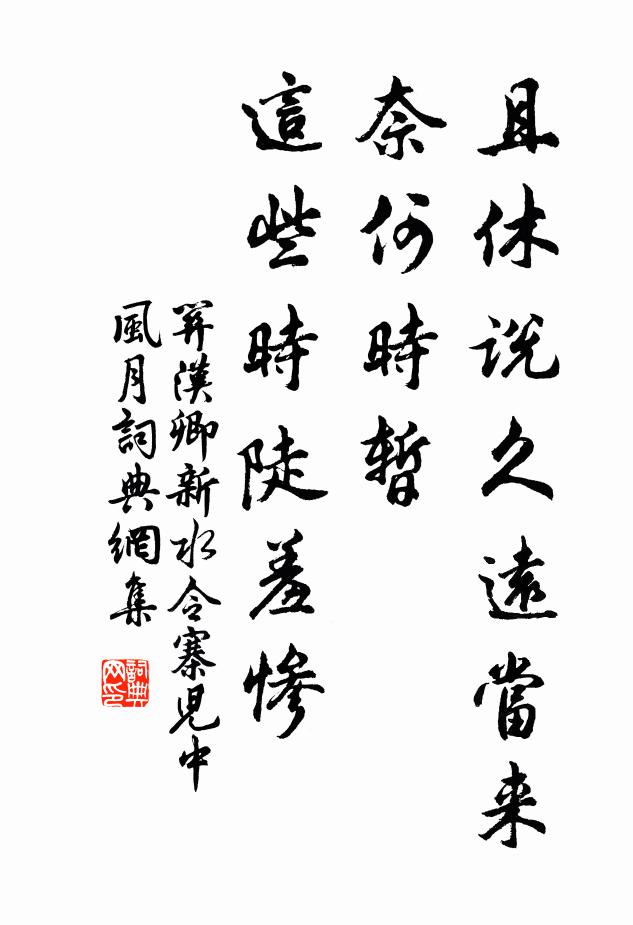 且休说久遠當来
奈何時暫
這些時陡羞慘
関漢卿新水令寨児中
風月詞典網集
詞典网印